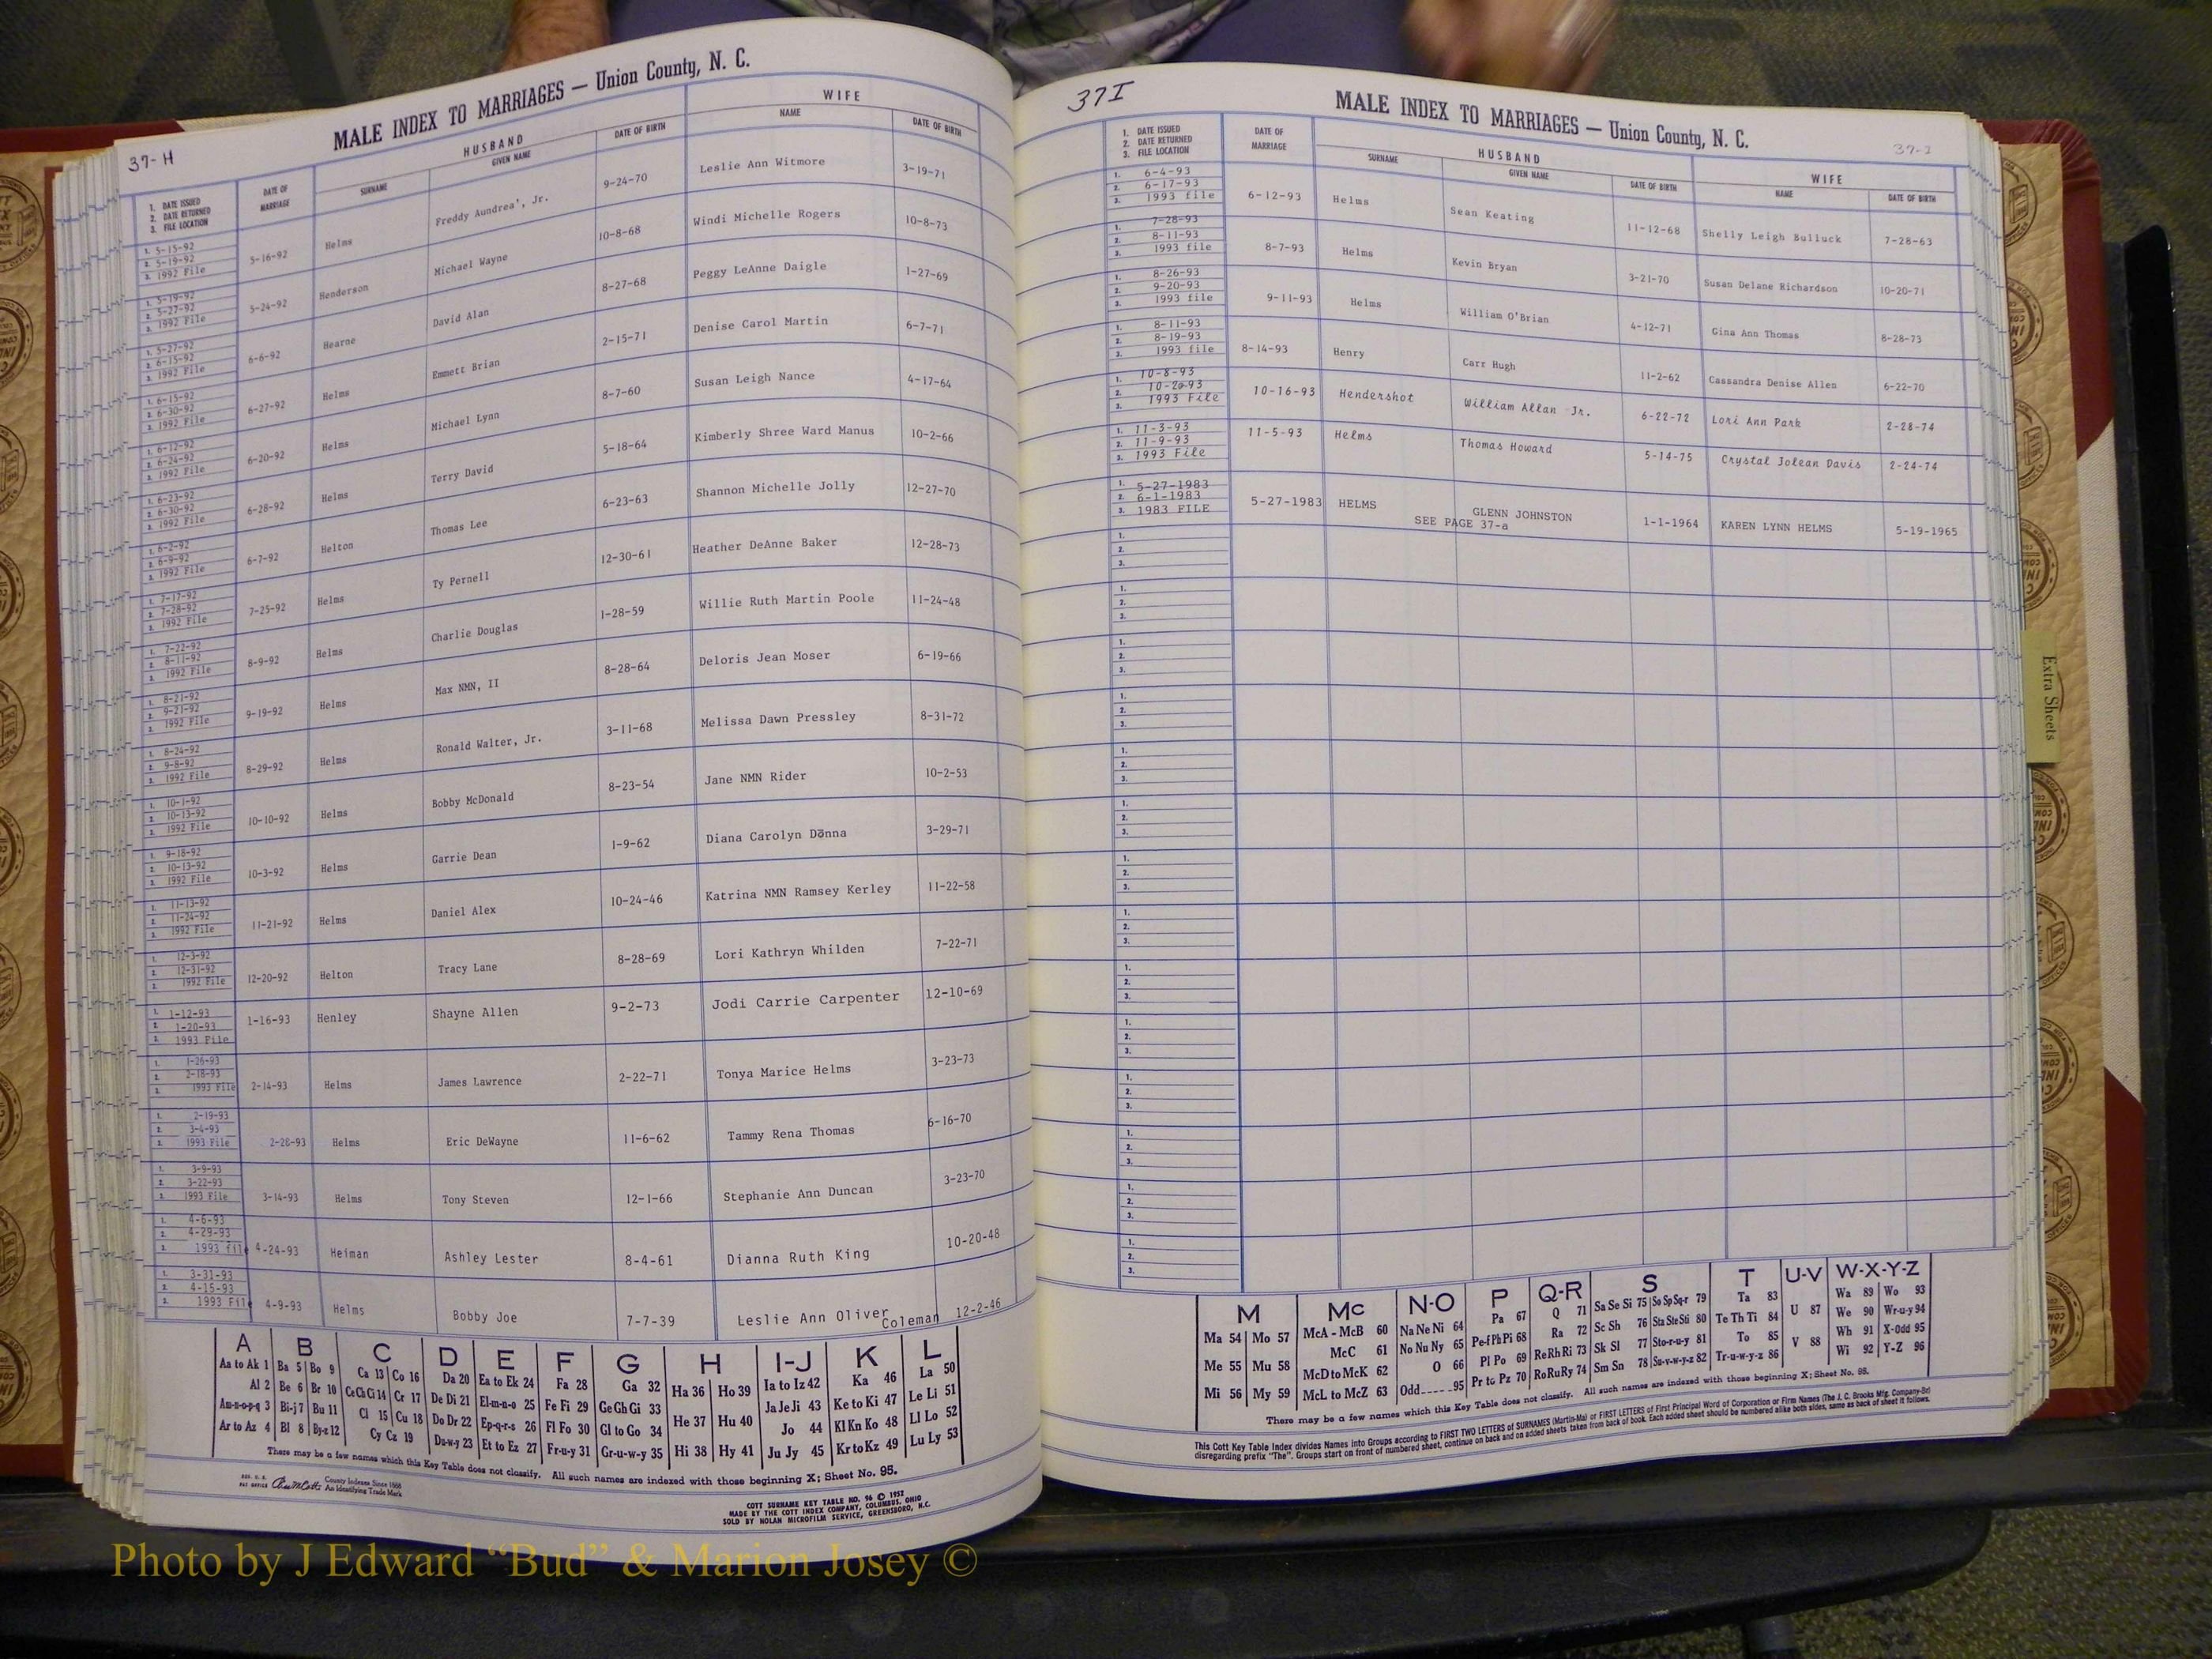 37-H
MALE INDEX TO MARRIAGES — Union County, N. C.
1. DATE ISSUED
2. DATE RETURNED
3. FILE LOCATION
DATE OF MARRIAGE
HUSBAND
SURNAME GIVEN NAME DATE OF BIRTH
WIFE
NAME DATE OF BIRTH
1. 5-15-92
2. 5-19-92
3. 1992 File
5-16-92 Helms Freddy Aundrea', Jr. 9-24-70 Leslie Ann Witmore 3-19-71
1. 5-19-92
2. 5-27-92
3. 1992 File
5-24-92 Henderson Michael Wayne 10-8-68 Windi Michelle Rogers 10-8-73
1. 5-27-92
2. 6-15-92
3. 1992 File
6-6-92 Hearne David Alan 8-27-68 Peggy LeAnne Daigle 1-27-69
1. 6-15-92
2. 6-30-92
3. 1992 File
6-27-92 Helms Emmett Brian 2-15-71 Denise Carol Martin 6-7-71
1. 6-12-92
2. 6-24-92
3. 1992 File
6-20-92 Helms Michael Lynn 8-7-60 Susan Leigh Nance 4-17-64
1. 6-23-92
2. 6-30-92
3. 1992 File
6-28-92 Helms Terry David 5-18-64 Kimberly Shree Ward Manus 10-2-66
1. 6-2-92
2. 6-9-92
3. 1992 File
6-7-92 Helton Thomas Lee 6-23-63 Shannon Michelle Jolly 12-27-70
1. 7-17-92
2. 7-28-92
3. 1992 File
7-25-92 Helms Ty Pernell 12-30-61 Heather DeAnne Baker 12-28-73
1. 7-22-92
2. 8-11-92
3. 1992 File
8-9-92 Helms Charlie Douglas 1-28-59 Willie Ruth Martin Poole 11-24-48
1. 8-21-92
2. 9-21-92
3. 1992 File
9-19-92 Helms Max NMN, II 8-28-64 Deloris Jean Moser 6-19-66
1. 8-24-92
2. 9-8-92
3. 1992 File
8-29-92 Helms Ronald Walter, Jr. 3-11-68 Melissa Dawn Pressley 8-31-72
1. 10-1-92
2. 10-13-92
3. 1992 File
10-10-92 Helms Bobby McDonald 8-23-54 Jane NMN Rider 10-2-53
1. 9-18-92
2. 10-13-92
3. 1992 File
10-3-92 Helms Garrie Dean 1-9-62 Diana Carolyn Donna 3-29-71
1. 11-13-92
2. 11-24-92
3. 1992 File
11-21-92 Helms Daniel Alex 10-24-46 Katrina NMN Ramsey Kerley 11-22-58
1. 12-3-92
2. 12-31-92
3. 1992 File
12-20-92 Helton Tracy Lane 8-28-69 Lori Kathryn Whilden 7-22-71
1. 1-12-93
2. 1-20-93
3. 1993 File
1-16-93 Henley Shayne Allen 9-2-73 Jodi Carrie Carpenter 12-10-69
1. 1-26-93
2. 2-18-93
3. 1993 File
2-14-93 Helms James Lawrence 2-22-71 Tonya Marice Helms 3-23-73
1. 2-19-93
2. 3-4-93
3. 1993 File
2-28-93 Helms Eric DeWayne 11-6-62 Tammy Rena Thomas 6-16-70
1. 3-9-93
2. 3-22-93
3. 1993 File
3-14-93 Helms Tony Steven 12-1-66 Stephanie Ann Duncan 3-23-70
1. 4-6-93
2. 4-29-93
3. 1993 file
4-24-93 Heiman Ashley Lester 8-4-61 Dianna Ruth King 10-20-48
1. 3-31-93
2. 4-15-93
3. 1993 Fil
4-9-93 Helms Bobby Joe 7-7-39 Leslie Ann Oliver Coleman 12-2-46
A B C D E F G H I-J K L
Aa to Ak 1 Ba 5 Bo 9 Ca 13 Co 16 Da 20 Ea to Ek 24 Fa 28 Ga 32 Ha 36 Ho 39 Ia to Iz 42 Ka 46 La 50
Al 2 Be 6 Br 10 Ce Ch Ci 14 Cr 17 De Di 21 El-m-n-o 25 Fe Fi 29 Ge Gh Gi 33 Ja Je Ji 43 Ke to Ki 47 Le Li 51
Am-n-o-p-q 3 Bi-j 7 Bu 11 Cl 15 Cu 18 Do Dr 22 Ep-q-r-s 26 Fl Fo 30 Gl to Go 34 He 37 Hu 40 Jo 44 Kl Kn Ko 48 Ll Lo 52
Ar to Az 4 Bl 8 By-z 12 Cy Cz 19 Du-w-y 23 Et to Ez 27 Fr-u-y 31 Gr-u-w-y 35 Hi 38 Hy 41 Ju Jy 45 Kr to Kz 49 Lu Ly 53
There may be a few names which this Key Table does not classify. All such names are indexed with those beginning X; Sheet No. 95.
County Indexes Since 1888
An Identifying Trade Mark
COTT SURNAME KEY TABLE NO. 96 © 1952
MADE BY THE COTT INDEX COMPANY, COLUMBUS, OHIO
SOLD BY NOLAN MICROFILM SERVICE, GREENSBORO, N.C.
37I
MALE INDEX TO MARRIAGES — Union County, N. C.
37-I
1. DATE ISSUED
2. DATE RETURNED
3. FILE LOCATION
DATE OF MARRIAGE
HUSBAND
SURNAME GIVEN NAME DATE OF BIRTH
WIFE
NAME DATE OF BIRTH
1. 6-4-93
2. 6-17-93
3. 1993 file
6-12-93 Helms Sean Keating 11-12-68 Shelly Leigh Bulluck 7-28-63
1. 7-28-93
2. 8-11-93
3. 1993 file
8-7-93 Helms Kevin Bryan 3-21-70 Susan Delane Richardson 10-20-71
1. 8-26-93
2. 9-20-93
3. 1993 file
9-11-93 Helms William O'Brian 4-12-71 Gina Ann Thomas 8-28-73
1. 8-11-93
2. 8-19-93
3. 1993 file
8-14-93 Henry Carr Hugh 11-2-62 Cassandra Denise Allen 6-22-70
1. 10-8-93
2. 10-20-93
3. 1993 File
10-16-93 Hendershot William Allan Jr. 6-22-72 Lori Ann Park 2-28-74
1. 11-3-93
2. 11-9-93
3. 1993 File
11-5-93 Helms Thomas Howard 5-14-75 Crystal Jolean Davis 2-24-74
1. 5-27-1983
2. 6-1-1983
3. 1983 FILE
5-27-1983 HELMS GLENN JOHNSTON 1-1-1964 KAREN LYNN HELMS 5-19-1965
SEE PAGE 37-a
1.
2.
3.
1.
2.
3.
1.
2.
3.
1.
2.
3.
1.
2.
3.
1.
2.
3.
1.
2.
3.
1.
2.
3.
1.
2.
3.
1.
2.
3.
1.
2.
3.
1.
2.
3.
1.
2.
3.
1.
2.
3.
Extra Sheets
M Mc N-O P Q-R S T U-V W-X-Y-Z
Ma 54 Mo 57 McA - McB 60 Na Ne Ni 64 Pa 67 Q 71 Sa Se Si 75 So Sp Sq-r 79 Ta 83 Wa 89 Wo 93
McC 61 No Nu Ny 65 Pe-f Ph Pi 68 Ra 72 Sc Sh 76 Sta Ste Sti 80 Te Th Ti 84 U 87 We 90 Wr-u-y 94
Me 55 Mu 58 McD to McK 62 O 66 Pl Po 69 Re Rh Ri 73 Sk Sl 77 Sto-r-u-y 81 To 85 Wh 91 X-Odd 95
Mi 56 My 59 McL to McZ 63 Odd 95 Pr to Pz 70 Ro Ru Ry 74 Sm Sn 78 Su-v-w-y-z 82 Tr-u-w-y-z 86 V 88 Wi 92 Y-Z 96
There may be a few names which this Key Table does not classify. All such names are indexed with those beginning X; Sheet No. 95.
This Cott Key Table Index divides Names into Groups according to FIRST TWO LETTERS of SURNAMES (Martin-Ma) or FIRST LETTERS of First Principal Word of Corporation or Firm Names (The J. C. Brooks Mfg. Company-Br)
disregarding prefix "The". Groups start on front of numbered sheet, continue on back and on added sheets taken from back of book. Each added sheet should be numbered alike both sides, same as back of sheet it follows.
Photo by J Edward “Bud” & Marion Josey ©